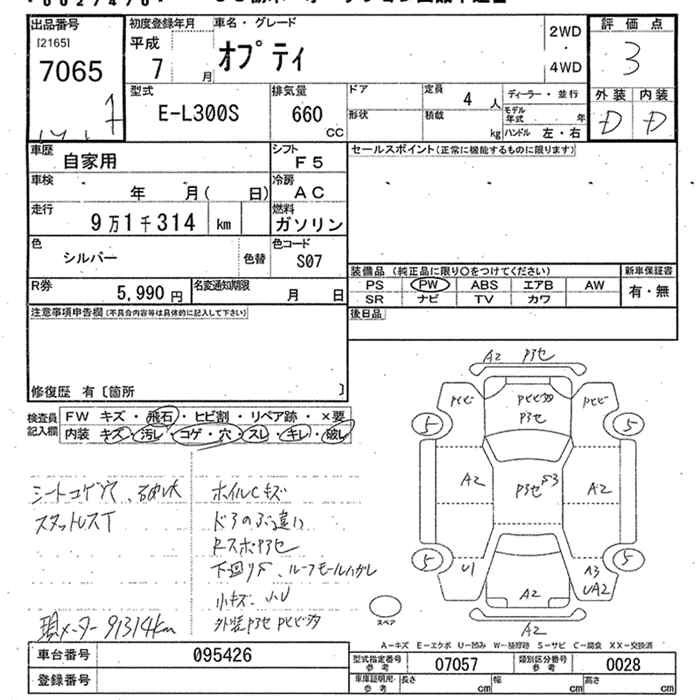 出品番号 初度登録年月 車名・グレード 2WD 評価点
[2165] 平成
7065 7 月 オプティ 4WD 3
型式 排気量 ドア 定員 ディーラー・並行 外装 内装
4 人 モデル年式 年
E-L300S 660 CC 形状 積載 kg ハンドル 左・右 D D
車歴 自家用 シフト F5 セールスポイント(正常に機能するものに限ります)
車検 年 月( 日) 冷房 AC
走行 9万1千314 km 燃料 ガソリン
色 シルバー 色替 色コード S07
装備品 (純正品に限り○をつけてください) 新車保証書
R券 5,990 円 名変通知期限 月 日 PS PW ABS エアB AW 有・無
SR ナビ TV カワ
注意事項申告欄(不具合内容等は具体的に記入して下さい) 後日品
修復歴 有〔箇所 〕
検査員記入欄 FW キズ・飛石・ヒビ割・リペア跡・×要
内装 キズ・汚レ・コゲ・穴・スレ・キレ・破レ
A2 P3セ
Pヒビ Pヒビ多 Pヒビ
P3セ
5 5
A2 P3セ A2
シートコゲ穴、
スタットレスT
ホイルCキズ
ドアのぶ違い
RスポP3セ
下回りサ、ルーフモールハガレ
小キズ、小U
外装P3セ Pヒビ多
現メーター91314km
5 5
U1 A3
UA2
A2
スペア
A2
A-キズ E-エクボ U-凹み W-修理跡 S-サビ C-腐食 XX-交換済
車台番号 095426 型式指定番号 参考 07057 類別区分番号 参考 0028
登録番号 車庫証明用・参考 長さ cm 幅 cm 高さ cm